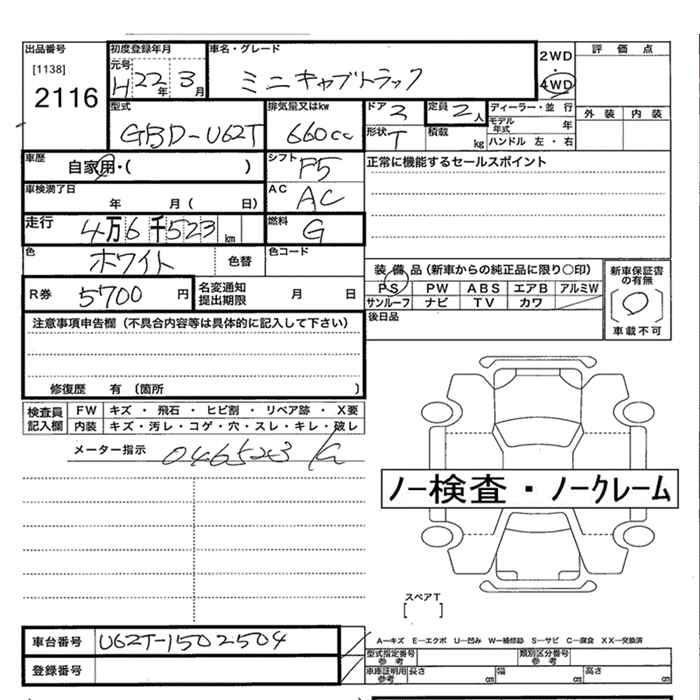 出品番号
[1138]
2116
初度登録年月
元号
H22年3月
車名・グレード
ミニキャブトラック
2WD
・
4WD
評価点
外装 内装
型式
GBD-U62T
排気量又はkw
660cc
ドア 2
形状 T
定員 2人
積載 kg
ディーラー・並行
モデル年式 年
ハンドル 左・右
車歴
自家用・( )
シフト
F5
正常に機能するセールスポイント
車検満了日
年 月( 日)
AC
AC
走行
4万6千523km
燃料
G
色
ホワイト
色替
色コード
R券 5700円
名変通知
提出期限
月 日
装備品(新車からの純正品に限り○印)
PS PW ABS エアB アルミW
サンルーフ ナビ TV カワ
新車保証書
の有無
〔○〕
車載不可
後日品
注意事項申告欄(不具合内容等は具体的に記入して下さい)
修復歴 有 (箇所 )
検査員
記入欄
FW キズ・飛石・ヒビ割・リペア跡・X要
内装 キズ・汚レ・コゲ・穴・スレ・キレ・破レ
メーター指示 046523 K
ノー検査・ノークレーム
スペアT
[ ]
車台番号 U62T-1502504
登録番号
A-キズ E-エクボ U-凹み W-補修跡 S-サビ C-腐食 XX-交換済
型式指定番号
参考
類別区分番号
参考
車庫証明用
参考
長さ cm 幅 cm 高さ cm